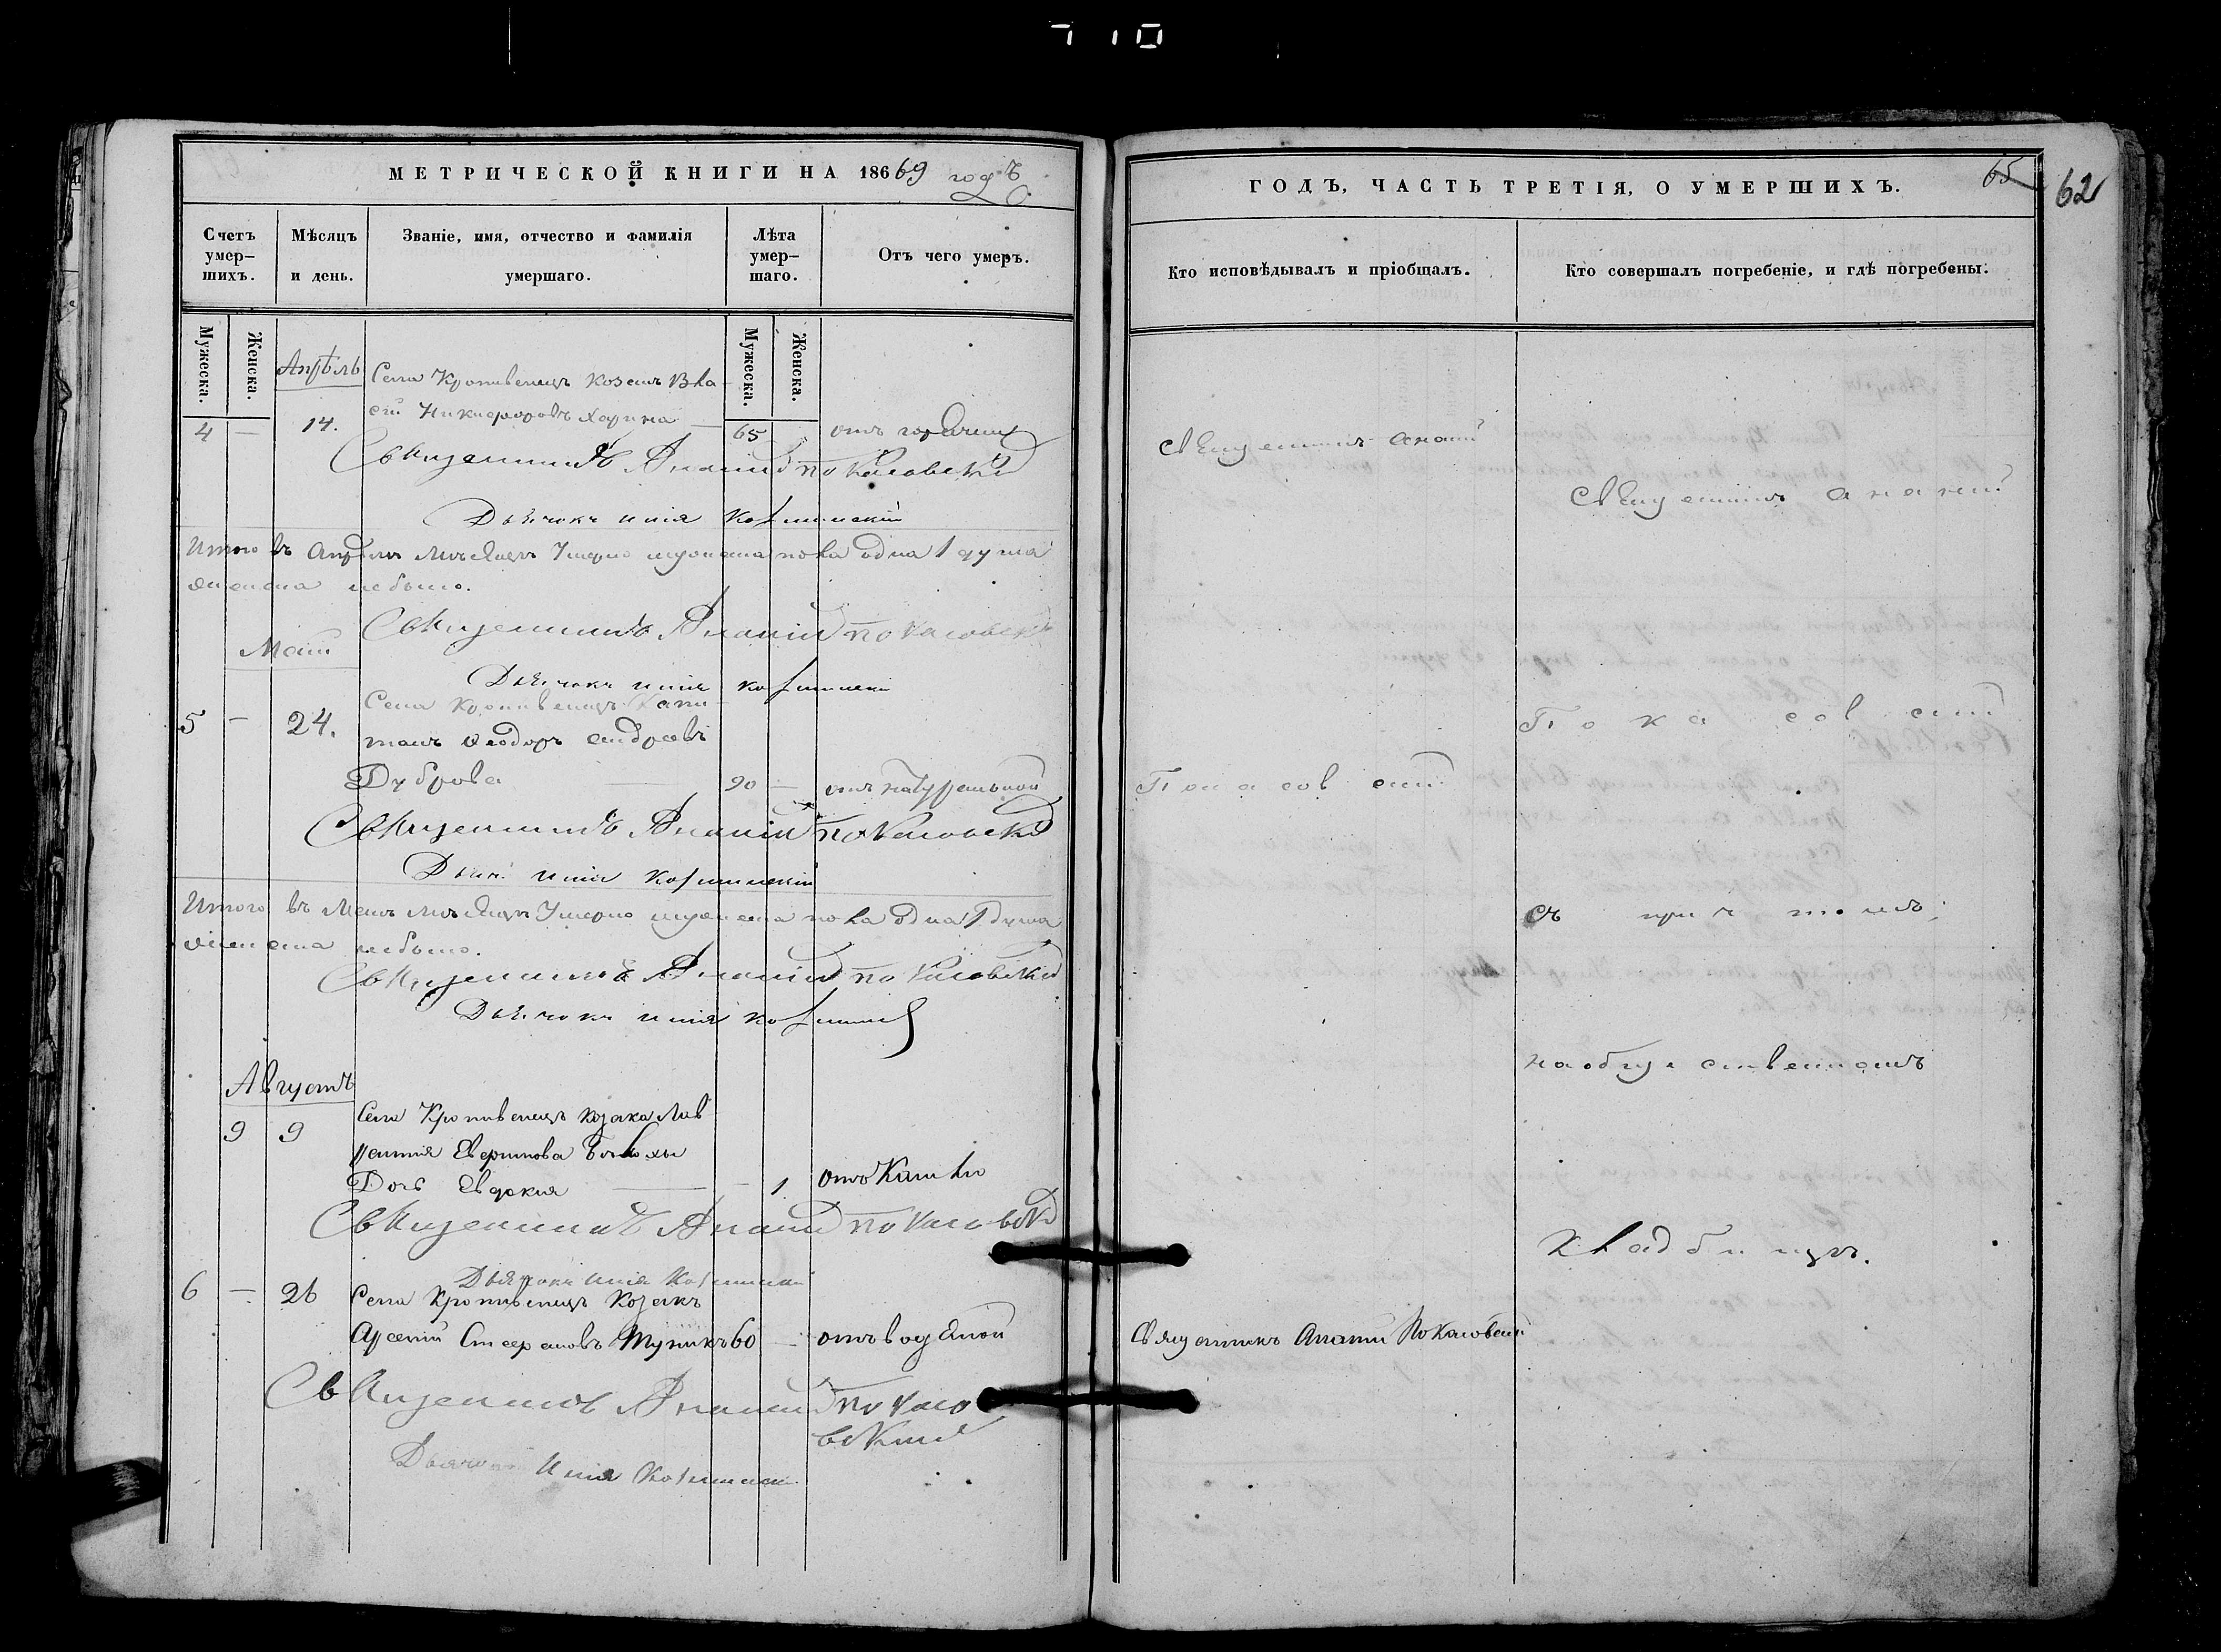 710
МЕТРИЧЕСКОЙ КНИГИ НА 18669 годъ
Счетъ умер-шихъ.
Мѣсяцъ и день.
Званіе, имя, отчество и фамилія умершаго.
Лѣта умер-шаго.
Отъ чего умеръ.
Мужеска.
Женска.
Мужеска.
Женска.
Апрѣль
Села Кропивенецъ Козакъ Вла-
4 — 14. сій Никифоровъ Харина — 65 отъ горячки
Священникъ Ананій Покасовскій
Дьячокъ Илія
Итого въ Апрѣлѣ мѣсяцѣ умерло мужеска пола одна 1 душа
женска небыло.
Священникъ Ананій Покасовскій
Май
Дьячокъ Илія
Села Кропивенецъ Капи-
5 — 24. танъ Феодоръ Андреевъ
Дуброва — 90 — отъ натуральной
Священникъ Ананій Покасовскій
Дьяч. Илія
Итого въ Маѣ мѣсяцѣ умерло мужеска пола одна 1 душа
женска небыло.
Священникъ Ананій Покасовскій
Дьячокъ Илія
Августъ
Села Кропивенецъ козака Лав
9 9 рентія
Дочь Евдокія — — 1 отъ Кашлю
Священникъ Ананій Покасовскій
Дьячокъ Илія
6 — 26 Села Кропивенецъ Козакъ
Арсеній Стефановъ Тупикъ 60 — отъ водяной
Священникъ Ананій Покасо
вскій
Дьячокъ Илія
ГОДЪ, ЧАСТЬ ТРЕТІЯ, О УМЕРШИХЪ.
65
62
Кто исповѣдывалъ и пріобщалъ.
Кто совершалъ погребеніе, и гдѣ погребены.
Священникъ Ананій
Священникъ Ананій
Покасовскій
Покасовскій
съ причтомъ
на общественномъ
кладбищѣ.
Священникъ Ананій Покасовскій